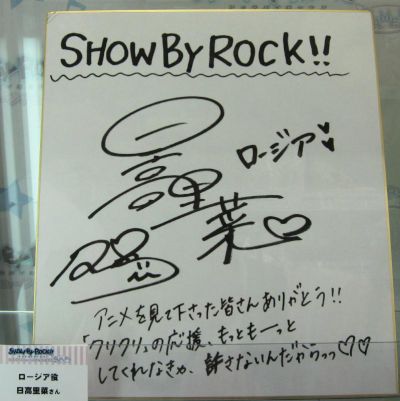 SHOW BY ROCK!!
ロージア
日高里菜
アニメを見て下さった皆さんありがとう!!
「クリクリ」の応援、もっともーっと
してくれなきゃ、許さないんだからっっ♡♡
SHOW BY ROCK!!
ロージア役
日高里菜さん